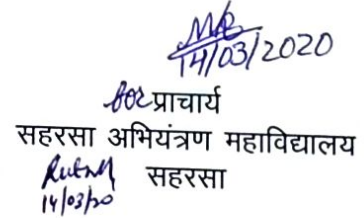 14/03/2020
for प्राचार्य
सहरसा अभियंत्रण महाविद्यालय
सहरसा
14/03/20